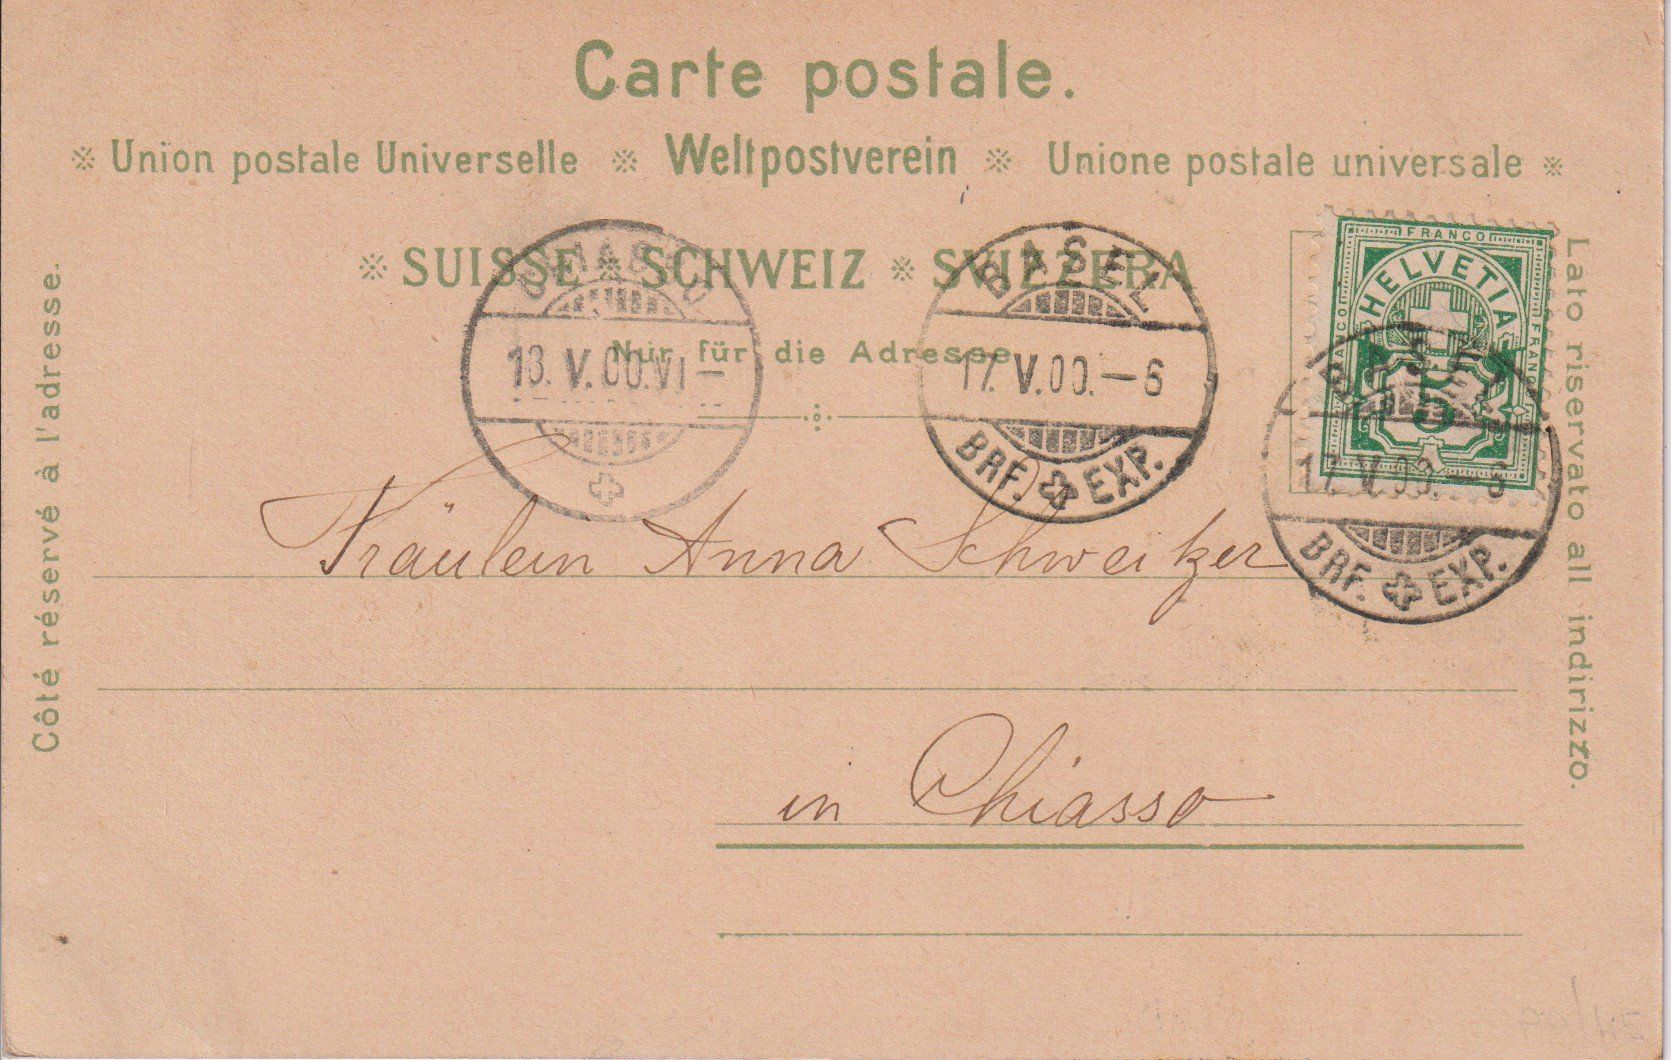 Carte postale.
※ Union postale Universelle ※ Weltpostverein ※ Unione postale universale ※
※ SUISSE ※ SCHWEIZ ※ SVIZZERA
Nur für die Adresse.
Côté réservé à l'adresse.
Lato riservato all indirizzo.
CHIASSO
18. V. 00. VI –
BASEL
17. V. 00. – 6
BRF. EXP.
FRANCO
FRANCO
FRANCO
HELVETIA
5
BASEL
17. V. 00. – 6
BRF. EXP.
Fräulein Anna Schweitzer
in Chiasso